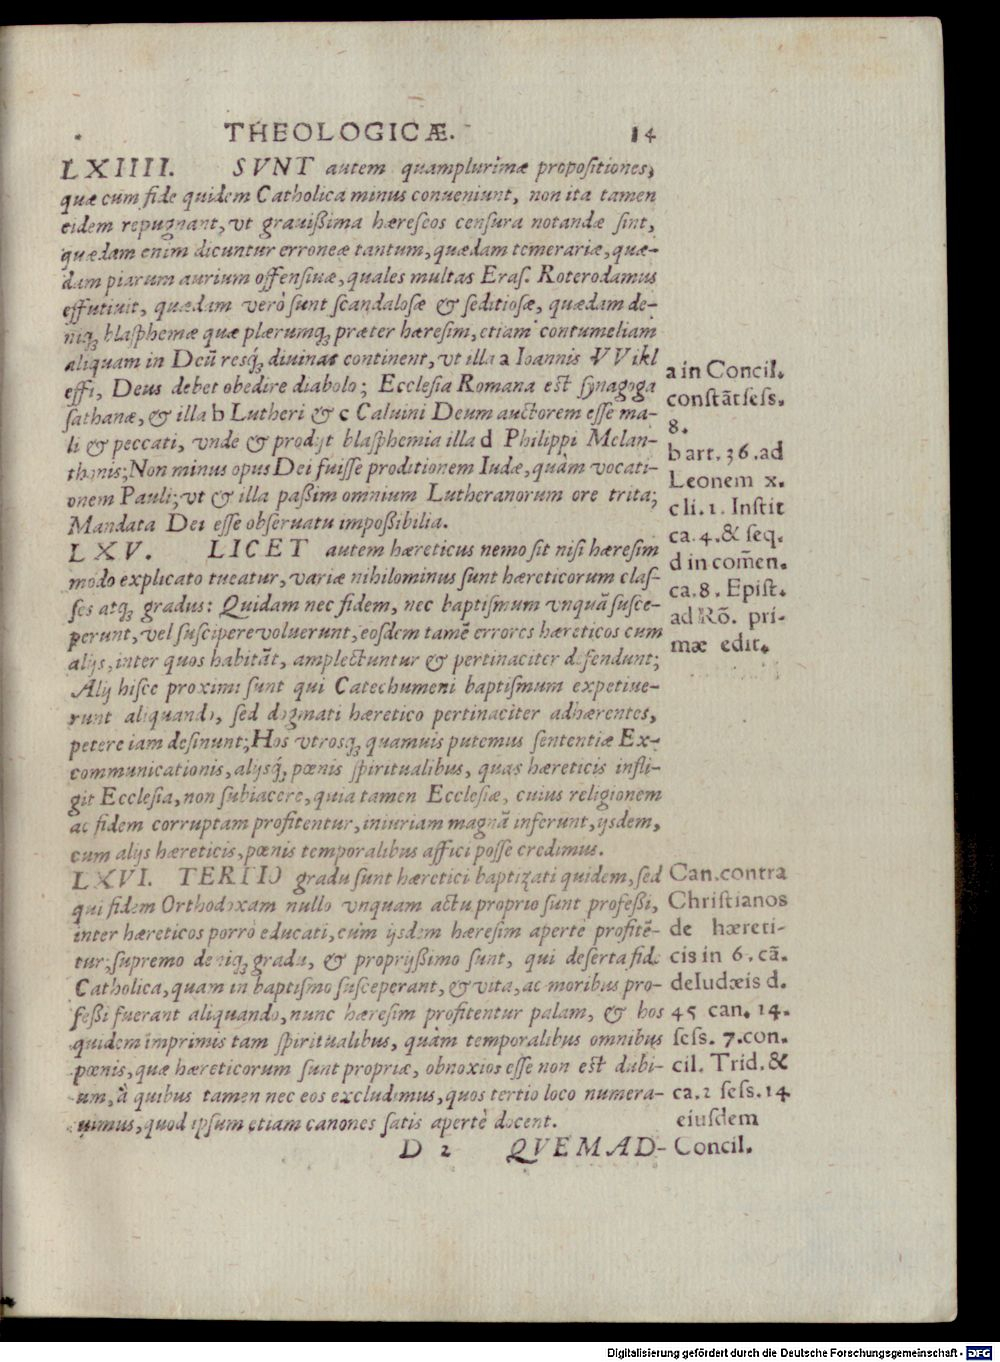 THEOLOGICÆ. 14
LXIIII. SVNT autem quamplurimæ propositiones,
quæ cum fide quidem Catholica minus conueniunt, non ita tamen
eidem repugnant, vt grauißima hæreseos censura notandæ sint,
quædam enim dicuntur erroneæ tantum, quædam temerariæ, quæ-
dam piarum aurium offensiuæ, quales multas Eras. Roterodamus
effutiuit, quædam verò sunt scandalosæ & seditiosæ, quædam de-
niq; blasphemæ quæ plærumq; præter hæresim, etiam contumeliam
aliquam in Deū resq́; diuinas continent, vt illa a Ioannis VVikl
effi, Deus debet obedire diabolo; Ecclesia Romana est synagoga
sathanæ, & illa b Lutheri & c Caluini Deum auctorem esse ma-
li & peccati, vnde & prodijt blasphemia illa d Philippi Melan-
thonis; Non minus opus Dei fuisse proditionem Iudæ, quàm vocati-
onem Pauli; vt & illa paßim omnium Lutheranorum ore trita;
Mandata Dei esse obseruatu impoßibilia.
a in Concil.
constāt sess.
8.
b art. 36. ad
Leonem x.
c li. 1. Instit
ca. 4. & seq.
d in com̄en.
ca. 8. Epist.
ad Rō. pri-
mæ edit.
LXV. LICET autem hæreticus nemo sit nisi hæresim
modo explicato tueatur, variæ nihilominus sunt hæreticorum clas-
ses atq; gradus: Quidam nec fidem, nec baptismum vnquā susce-
perunt, vel suscipere voluerunt, eosdem tamē errores hæreticos cum
alijs, inter quos habitāt, amplectuntur & pertinaciter defendunt;
Alij hisce proximi sunt qui Catechumeni baptismum expetiue-
runt aliquando, sed dogmati hæretico pertinaciter adhærentes,
petere iam desinunt; Hos vtrosq; quamuis putemus sententiæ Ex-
communicationis, alijsq́; pœnis spiritualibus, quas hæreticis infli-
git Ecclesia, non subiacere, quia tamen Ecclesiæ, cuius religionem
ac fidem corruptam profitentur, iniuriam magnā inferunt, ijsdem,
cum alijs hæreticis, pœnis temporalibus affici posse credimus.
LXVI. TERTIO gradu sunt hæretici baptizati quidem, sed
qui fidem Orthodoxam nullo vnquam actu proprio sunt profeßi,
inter hæreticos porrò educati, cùm ijsdem hæresim apertè profitē-
tur; supremo deniq; gradu, & proprijßimo sunt, qui deserta fide
Catholica, quam in baptismo susceperant, & vita, ac moribus pro-
feßi fuerant aliquando, nunc hæresim profitentur palam, & hos
quidem imprimis tam spiritualibus, quàm temporalibus omnibus
pœnis, quæ hæreticorum sunt propriæ, obnoxios esse non est dubi-
um, à quibus tamen nec eos excludimus, quos tertio loco numera-
uimus, quod ipsum etiam canones satis apertè docent.
Can. contra
Christianos
de hæreti-
cis in 6. cā.
de Iudæis d.
45 can. 14.
sess. 7. con.
cil. Trid. &
ca. 2 sess. 14
eiusdem
Concil.
D 2 QVEMAD-
Digitalisierung gefördert durch die Deutsche Forschungsgemeinschaft - DFG